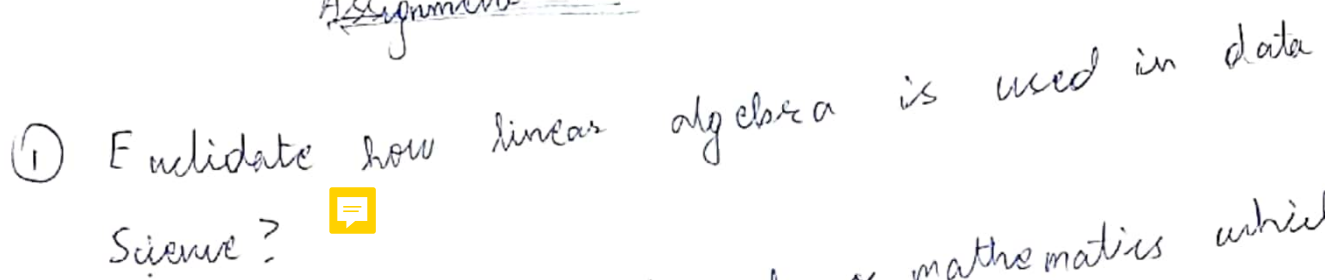 Assignment
① Euclidate how linear algebra is used in data
Science?
mathematics which